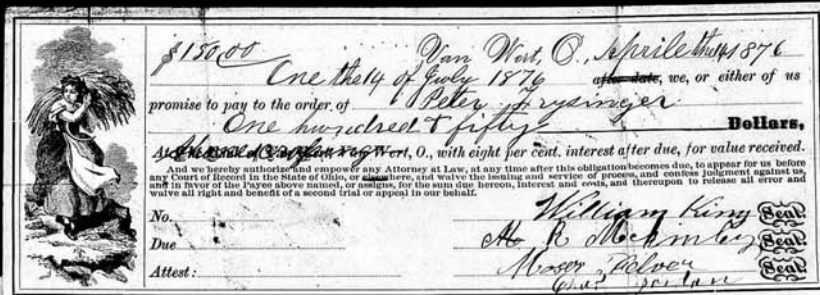 $150.00 Van Wert, O., Aprile the 14 1876
One the 14 of July 1876 after date, we, or either of us
promise to pay to the order of Peter Frysinger
One hundred & fifty Dollars,
At Wert, O., with eight per cent. interest after due, for value received.
And we hereby authorize and empower any Attorney at Law, at any time after this obligation becomes due, to appear for us before
any Court of Record in the State of Ohio, or elsewhere, and waive the issuing and service of process, and confess judgment against us,
and in favor of the Payee above named, or assigns, for the sum due hereon, interest and costs, and thereupon to release all error and
waive all right and benefit of a second trial or appeal in our behalf.
No. William King Seal.
Due R McKinley Seal.
Attest: Moser Seal.